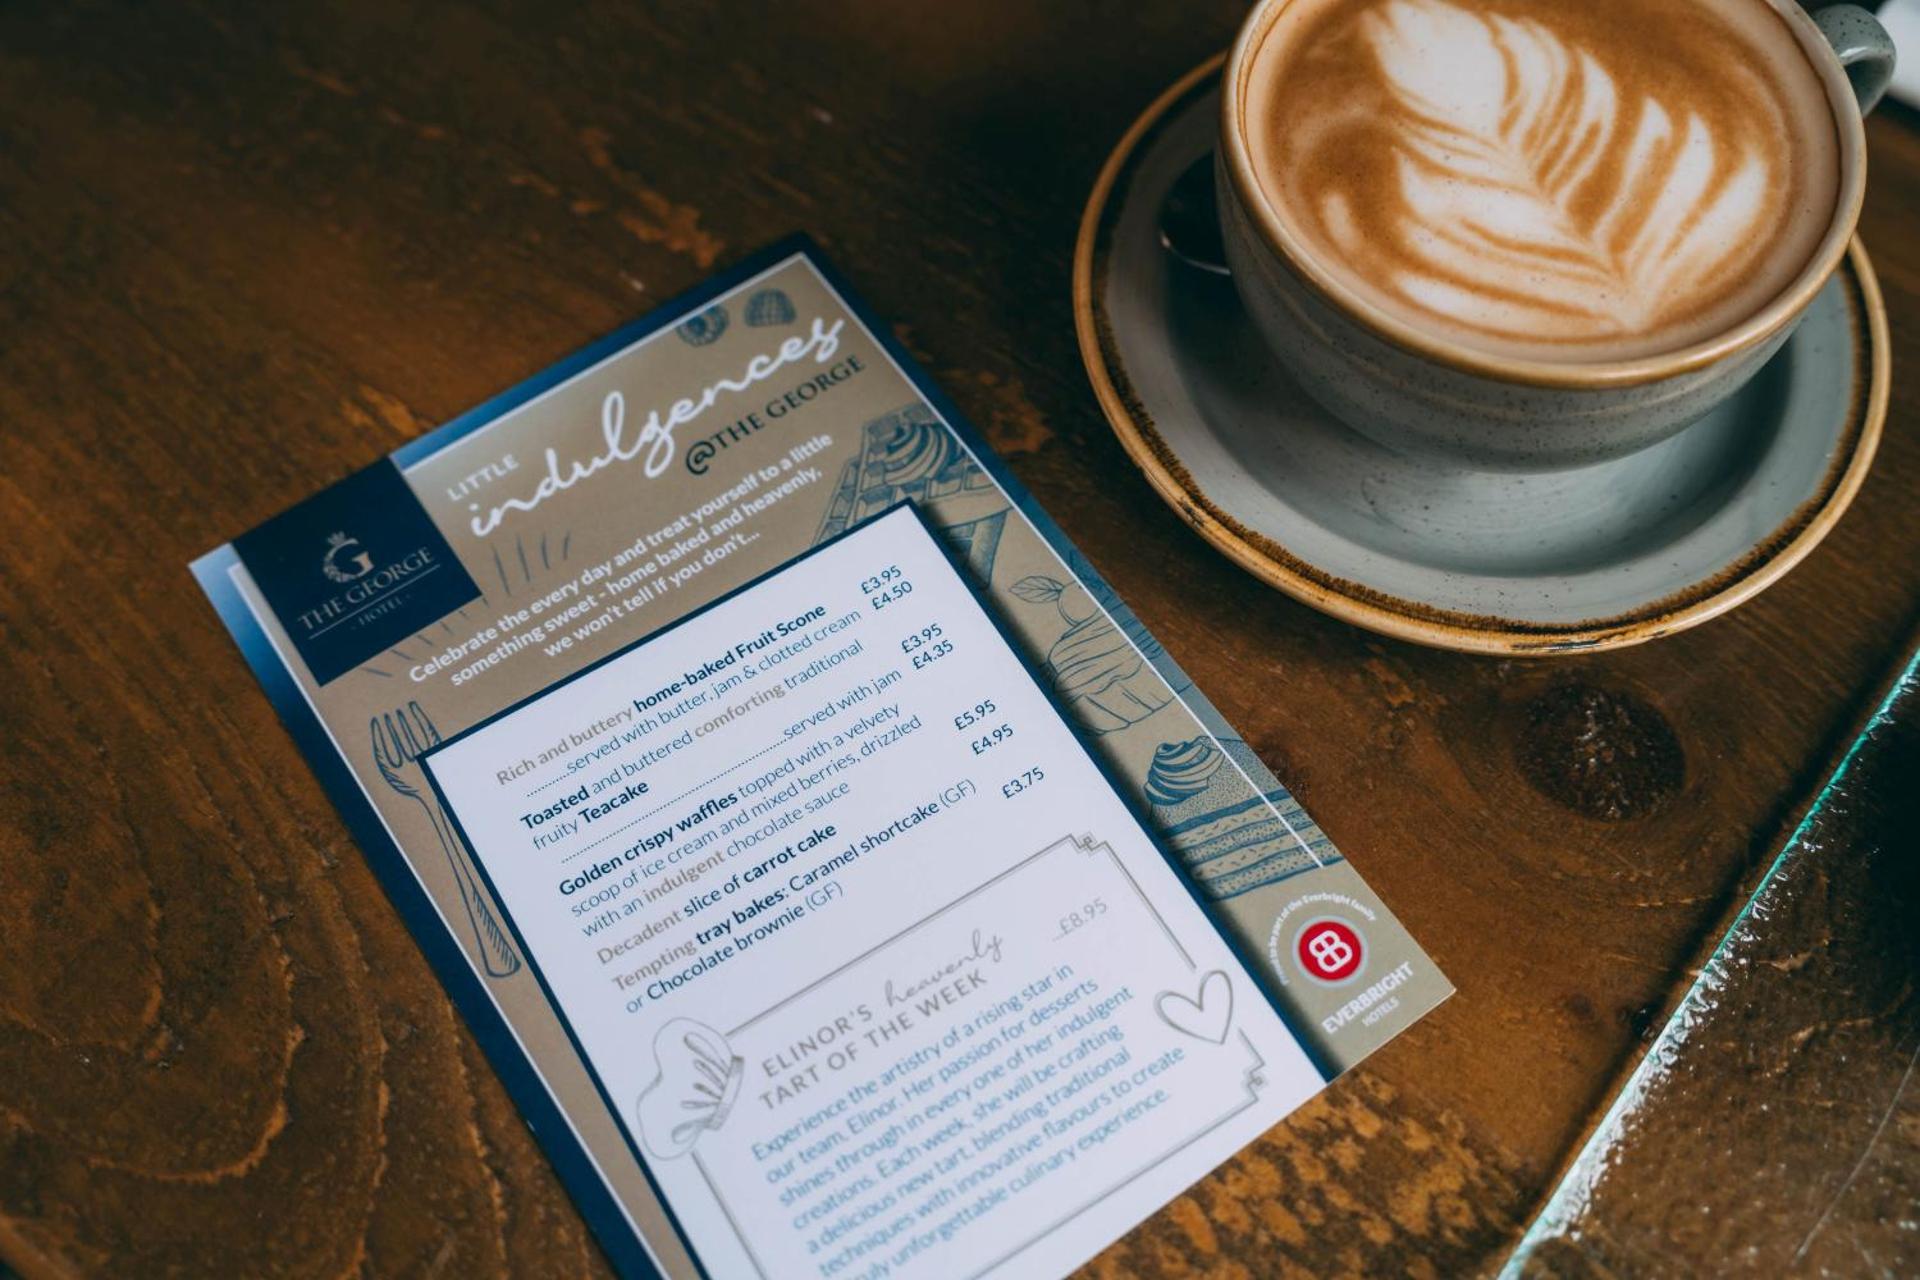 LITTLE
indulgences
@THE GEORGE
THE GEORGE
- HOTEL -
Celebrate the every day and treat yourself to a little
something sweet - home baked and heavenly,
we won't tell if you don't...
Rich and buttery home-baked Fruit Scone £3.95
..........served with butter, jam & clotted cream £4.50
Toasted and buttered comforting traditional
fruity Teacake £3.95
............................................................served with jam £4.35
Golden crispy waffles topped with a velvety
scoop of ice cream and mixed berries, drizzled
with an indulgent chocolate sauce £5.95
Decadent slice of carrot cake £4.95
Tempting tray bakes: Caramel shortcake (GF)
or Chocolate brownie (GF) £3.75
ELINOR'S heavenly
TART OF THE WEEK ...£8.95
Experience the artistry of a rising star in
our team, Elinor. Her passion for desserts
shines through in every one of her indulgent
creations. Each week, she will be crafting
a delicious new tart, blending traditional
techniques with innovative flavours to create
unforgettable culinary experience.
to be part of the Everbright family
EVERBRIGHT
HOTELS